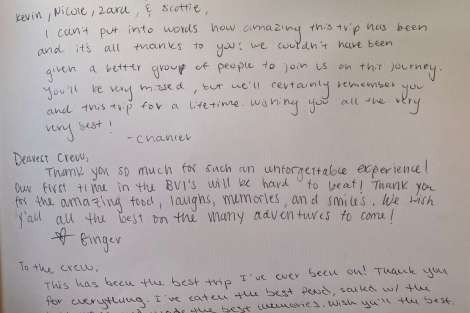 Kevin, Nicole, Zara, & Scottie,
I can't put into words how amazing this trip has been
and it's all thanks to you! We couldn't have been
given a better group of people to join us on this journey.
You'll be very missed, but we'll certainly remember you
and this trip for a lifetime. Wishing you all the very
very best!
Dearest Crew,
Thank you so much for such an unforgettable experience!
Our first time in the BVI's will be hard to beat! Thank you
for the amazing food, laughs, memories, and smiles. We wish
y'all all the best on the many adventures to come!
Ginger
To the crew,
This has been the best trip I've ever been on! Thank you
for everything. I've eaten the best food, sailed w/ the
made the best memories. Wish you'll the best.